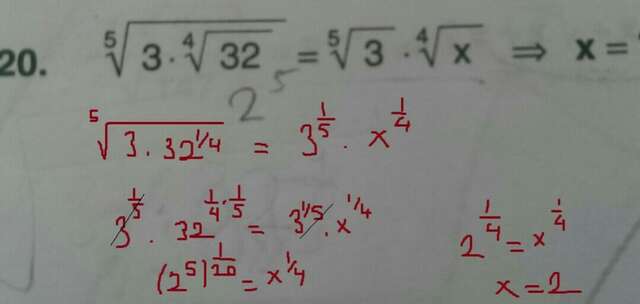 20. ⁵√(3 · ⁴√32) = ⁵√3 · ⁴√x ⇒ x =
2⁵
⁵√(3 . 32^1/4) = 3^(1/5) . x^(1/4)
3^(1/5) . 32^(1/4 · 1/5) = 3^1/5 . x^1/4
(2⁵)^(1/20) = x^1/4
2^(1/4) = x^(1/4)
x = 2